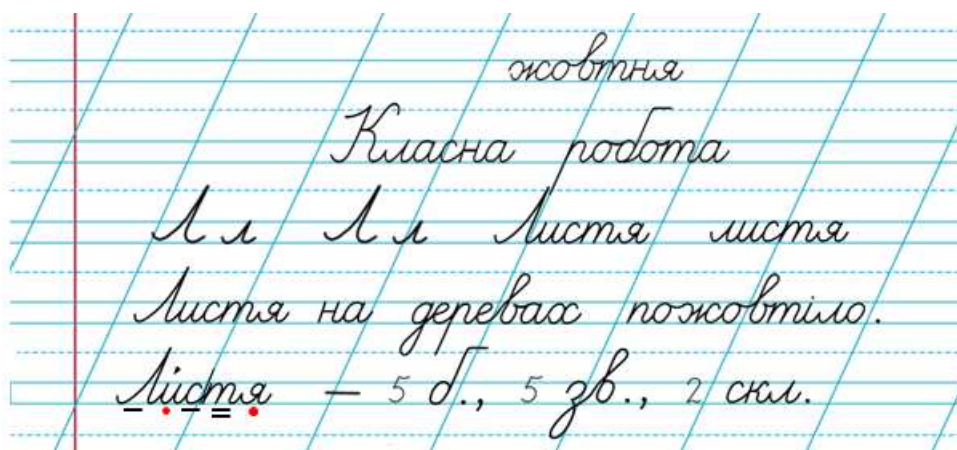 жовтня
Класна робота
Л л Л л Листя листя
Листя на деревах пожовтіло.
Ли́стя – 5 б., 5 зв., 2 скл.